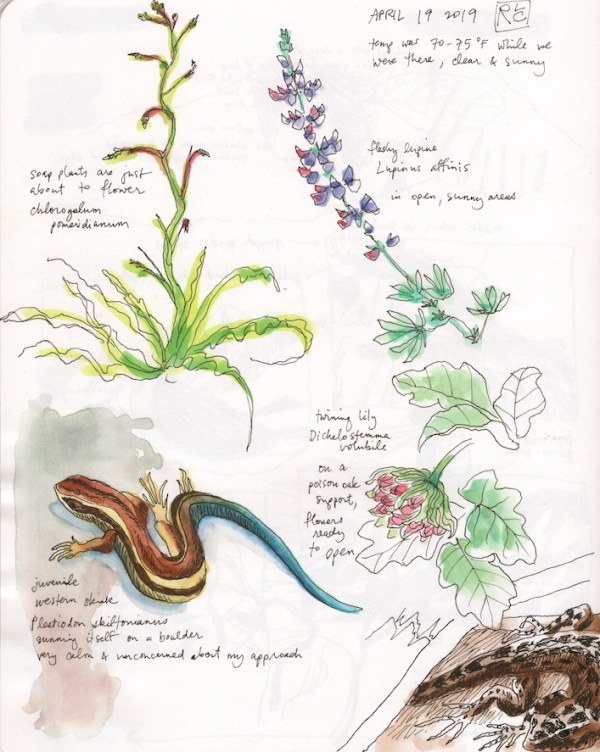 APRIL 19 2019 RLC
temp was 70-75°F while we
were there, clear & sunny
soap plants are just
about to flower
chlorogalum
pomeridianum
flashy lupine
Lupinus affinis
in open, sunny areas
twining lily
Dichelostemma
volubile
on a
poison oak
support,
flowers
ready
to open
juvenile
western skink
Plestiodon skiltonianus
sunning itself on a boulder
very calm & unconcerned about my approach